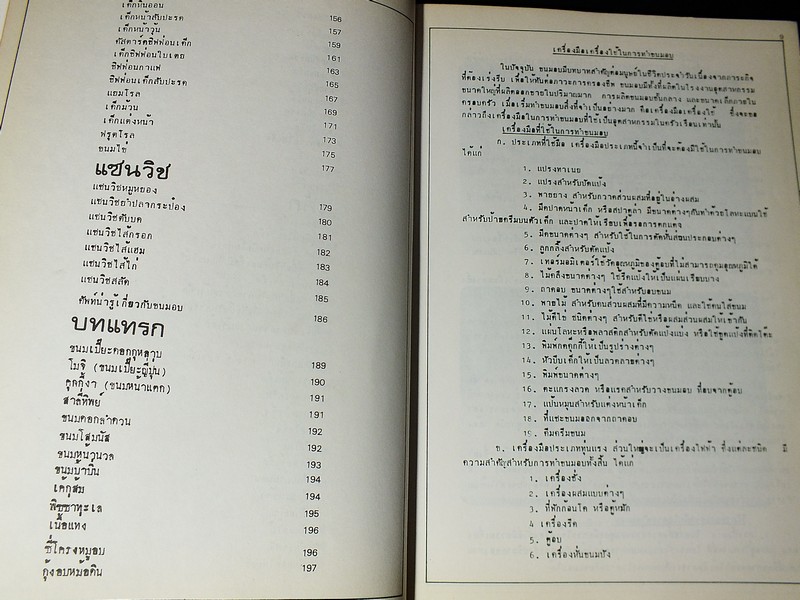 เค็กหน้าสับปะรด 156
เค็กหน้าวุ้น 157
คัสตาร์ดชิฟฟ่อนเค็ก 159
เค็กชิฟฟ่อนใบเตย 161
ชิฟฟ่อนกาแฟ 163
ชิฟฟ่อนเค็กสับปะรด 165
แยมโรล 167
เค็กม้วน 169
เค็กแต่งหน้า 171
ฟรุตโรล 173
ขนมไข่ 175
แซนวิช 177
แซนวิชหมูหยอง
แซนวิชยำปลากระป๋อง 179
แซนวิชตับบด 180
แซนวิชไส้กรอก 181
แซนวิชไส้แฮม 182
แซนวิชไส้ไก่ 183
แซนวิชสลัด 184
ศัพท์น่ารู้เกี่ยวกับขนมอบ 185
บทแทรก 186
ขนมเปี๊ยะดอกกุหลาบ
โมจิ (ขนมเปี๊ยะญี่ปุ่น) 189
คุลกิ้งา (ขนมหน้าแตก) 190
สาลี่ทิพย์ 191
ขนมดอกลำดวน 191
ขนมโสมนัส 192
ขนมหน้านวล 192
ขนมบ้าบิ่น 193
เค้กส้ม 194
พิซซ่าทะเล 194
เนื้อแทง 195
196
ซี่โครงหมูอบ 196
กุ้งอบหม้อดิน 197
9
เครื่องมือเครื่องใช้ในการทำขนมอบ
ในปัจจุบัน ขนมอบมีบทบาทสำคัญต่อมนุษย์ในชีวิตประจำวันเนื่องจากภาระกิจ
ที่ต้องเร่งรีบ เพื่อให้ทันต่อภาวะการครองชีพ ขนมอบมีทั้งที่ผลิตในโรงงานอุตสาหกรรม
ขนาดใหญ่ที่ผลิตออกขายในปริมาณมาก การผลิตขนมอบชั้นกลาง และขนาดเล็กภายใน
ครอบครัว เมื่อเริ่มทำขนมอบสิ่งที่จำเป็นอย่างมาก คือเครื่องมือเครื่องใช้ ซึ่งจะขอ
กล่าวถึงเครื่องมือในการทำขนมอบที่ใช้เป็นอุตสาหกรรมในครัวเรือนเท่านั้น
เครื่องมือที่ใช้ในการทำขนมอบ
ก. ประเภทที่ใช้มือ เครื่องมือประเภทนี้จำเป็นที่จะต้องมีใช้ในการทำขนมอบ
ได้แก่
1. แปรงทาเนย
2. แปรงสำหรับปัดแป้ง
3. พายยาง สำหรับกวาดส่วนผสมที่อยู่ในอ่างผสม
4. มีดปาดหน้าเค็ก หรือสปาตูล่า มีขนาดต่างๆกันทำด้วยโลหะแบนใช้
สำหรับป้ายครีมบนตัวเค็ก และปาดให้เรียบเพื่อรอการตกแต่ง
5. มีดขนาดต่างๆ สำหรับใช้ในการตัดหั่นส่วนประกอบต่างๆ
6. ลูกกลิ้งสำหรับตัดแป้ง
7. เทอร์มอมิเตอร์ใช้วัดอุณหภูมิของตู้อบที่ไม่สามารถคุมอุณหภูมิได้
8. ไม้คลึงขนาดต่างๆ ใช้รีดแป้งให้เป็นแผ่นเรียบบาง
9. ถาดอบ ขนาดต่างๆใช้สำหรับอบขนม
10. พายไม้ สำหรับคนส่วนผสมที่มีความหนืด และใช้คนไส้ขนม
11. ไม้ตีไข่ ชนิดต่างๆ สำหรับตีไข่หรือผสมส่วนผสมให้เข้ากัน
12. แผ่นโลหะหรือพลาสติกสำหรับตัดแบ่งแป้ง หรือใช้ขูดแป้งที่ติดโต๊ะ
13. พิมพ์กดคุ๊กกี้ให้เป็นรูปร่างต่างๆ
14. หัวบีบเค็กให้เป็นลวดลายต่างๆ
15. พิมพ์ขนาดต่างๆ
16. ตะแกรงลวด หรือแรคสำหรับวางขนมอบ ที่อบจากตู้อบ
17. แป้นหมุนสำหรับแต่งหน้าเค็ก
18. ที่แซะขนมออกจากถาดอบ
19. คีมครีมขนม
ข. เครื่องมือประเภททุ่นแรง ส่วนใหญ่จะเป็นเครื่องไฟฟ้า ซึ่งแต่ละชนิด มี
ความสำคัญสำหรับการทำขนมอบทั้งสิ้น ได้แก่
1. เครื่องชั่ง
2. เครื่องผสมแบบต่างๆ
3. ที่พักก้อนโด หรือตู้หมัก
4 เครื่องรีด
5. ตู้อบ
6. เครื่องหั่นขนมปัง